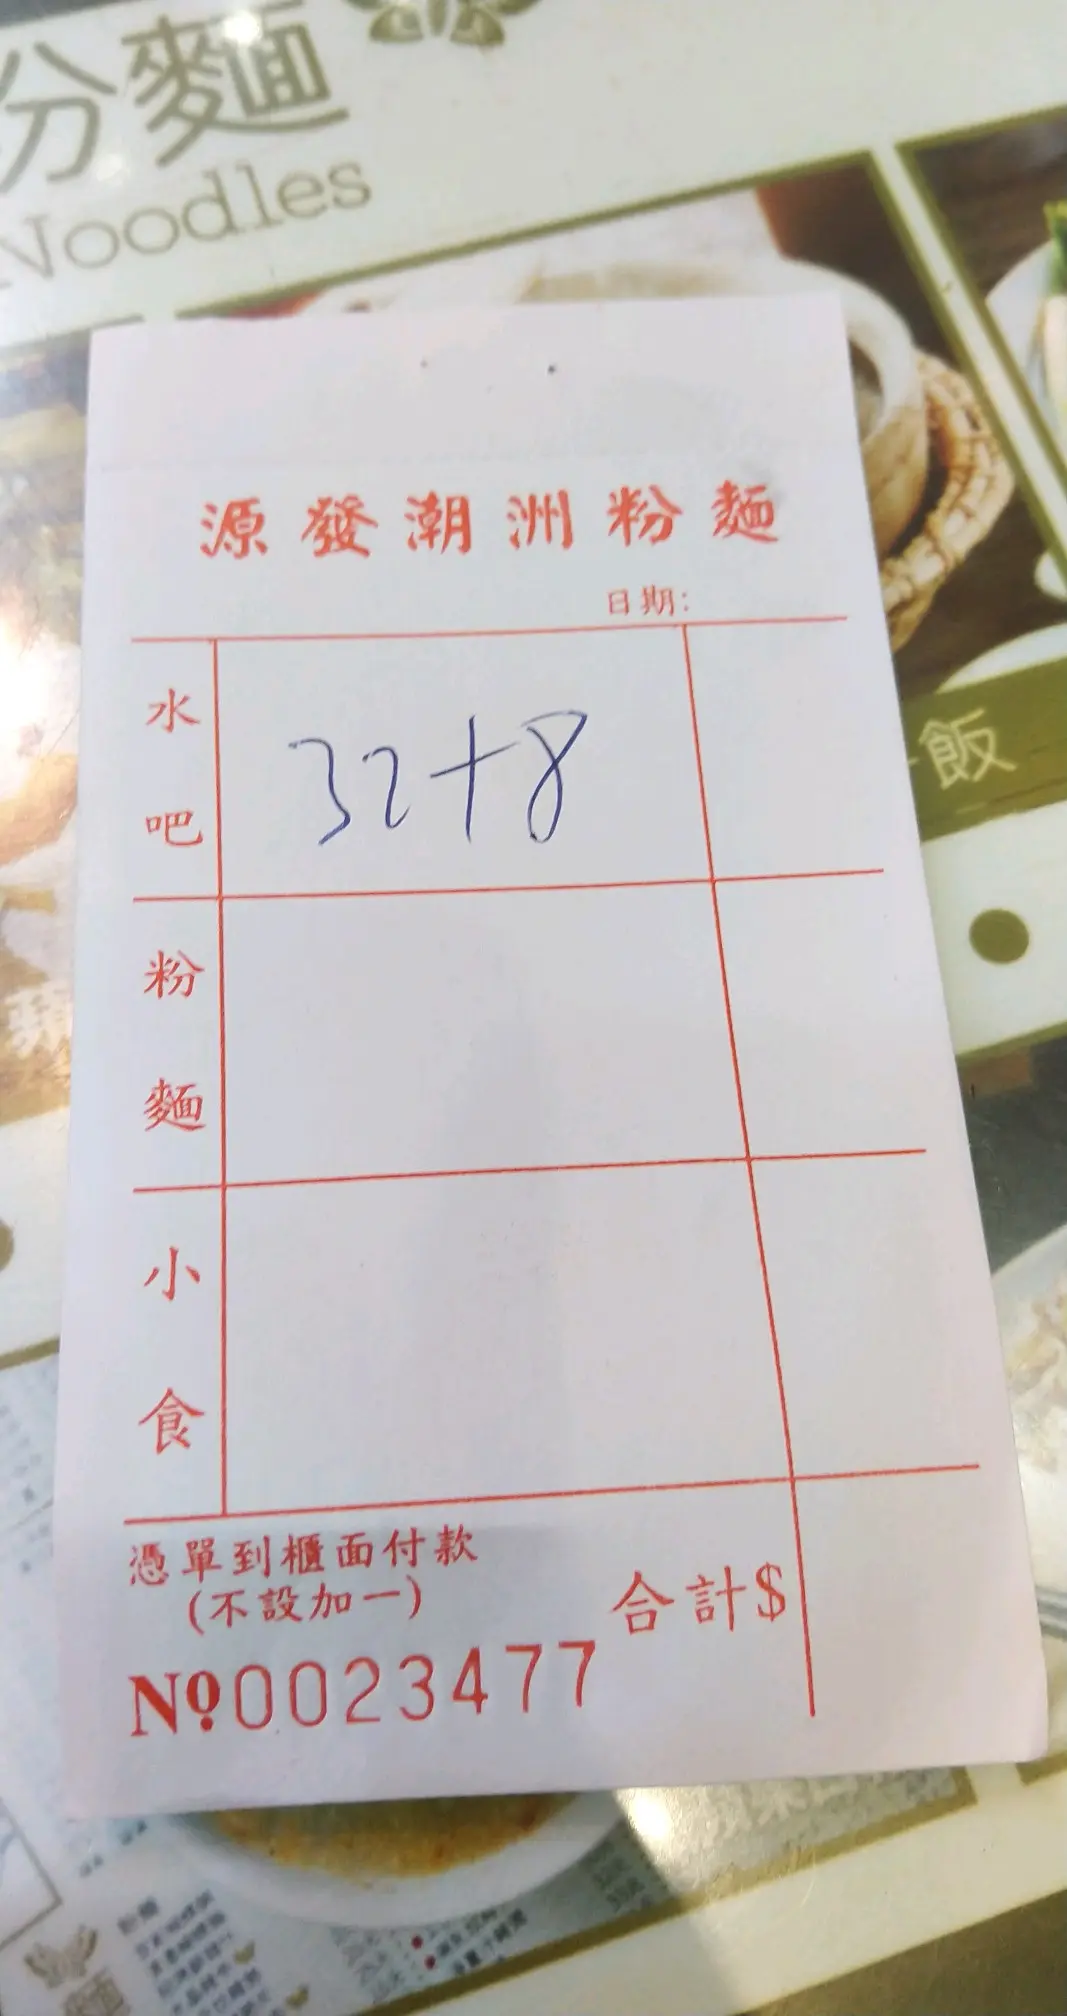 份麵
Noodles
源發潮洲粉麵
日期:
水吧
32+8
飯
粉麵
小食
憑單到櫃面付款
(不設加一)
合計$
No 0023477